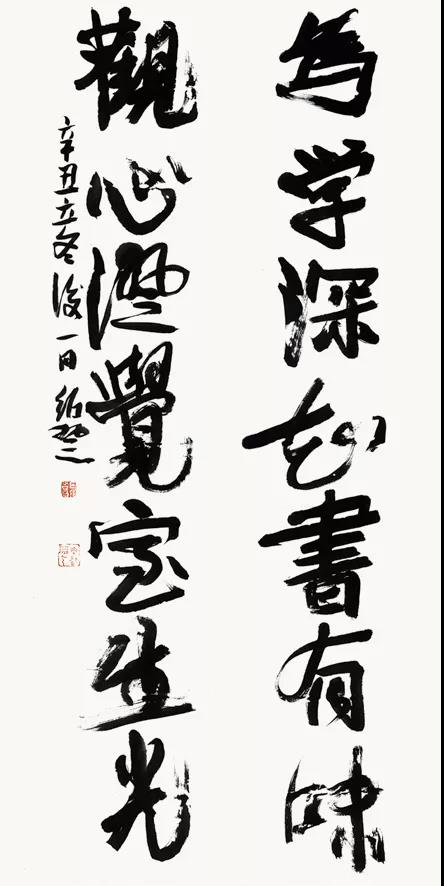 為学深知書有味
觀心澄覺室生光
辛丑立冬後一日